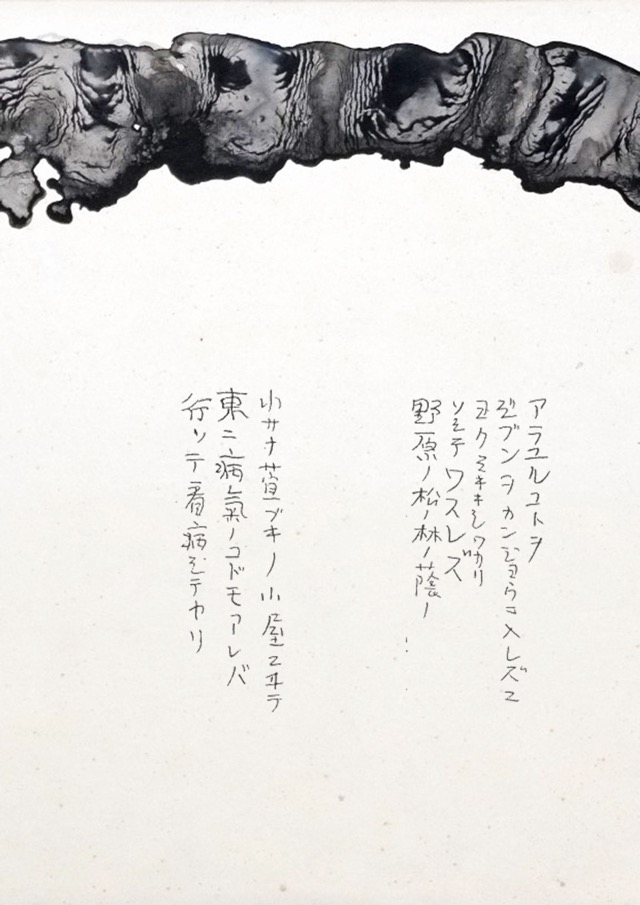 アラユルコトヲ
ジブンヲカンジョウニ入レズニ
ヨクミキキシワカリ
ソシテワスレズ
野原ノ松ノ林ノ蔭ノ
小サナ萱ブキノ小屋ニヰテ
東ニ病氣ノコドモアレバ
行ッテ看病シテヤリ